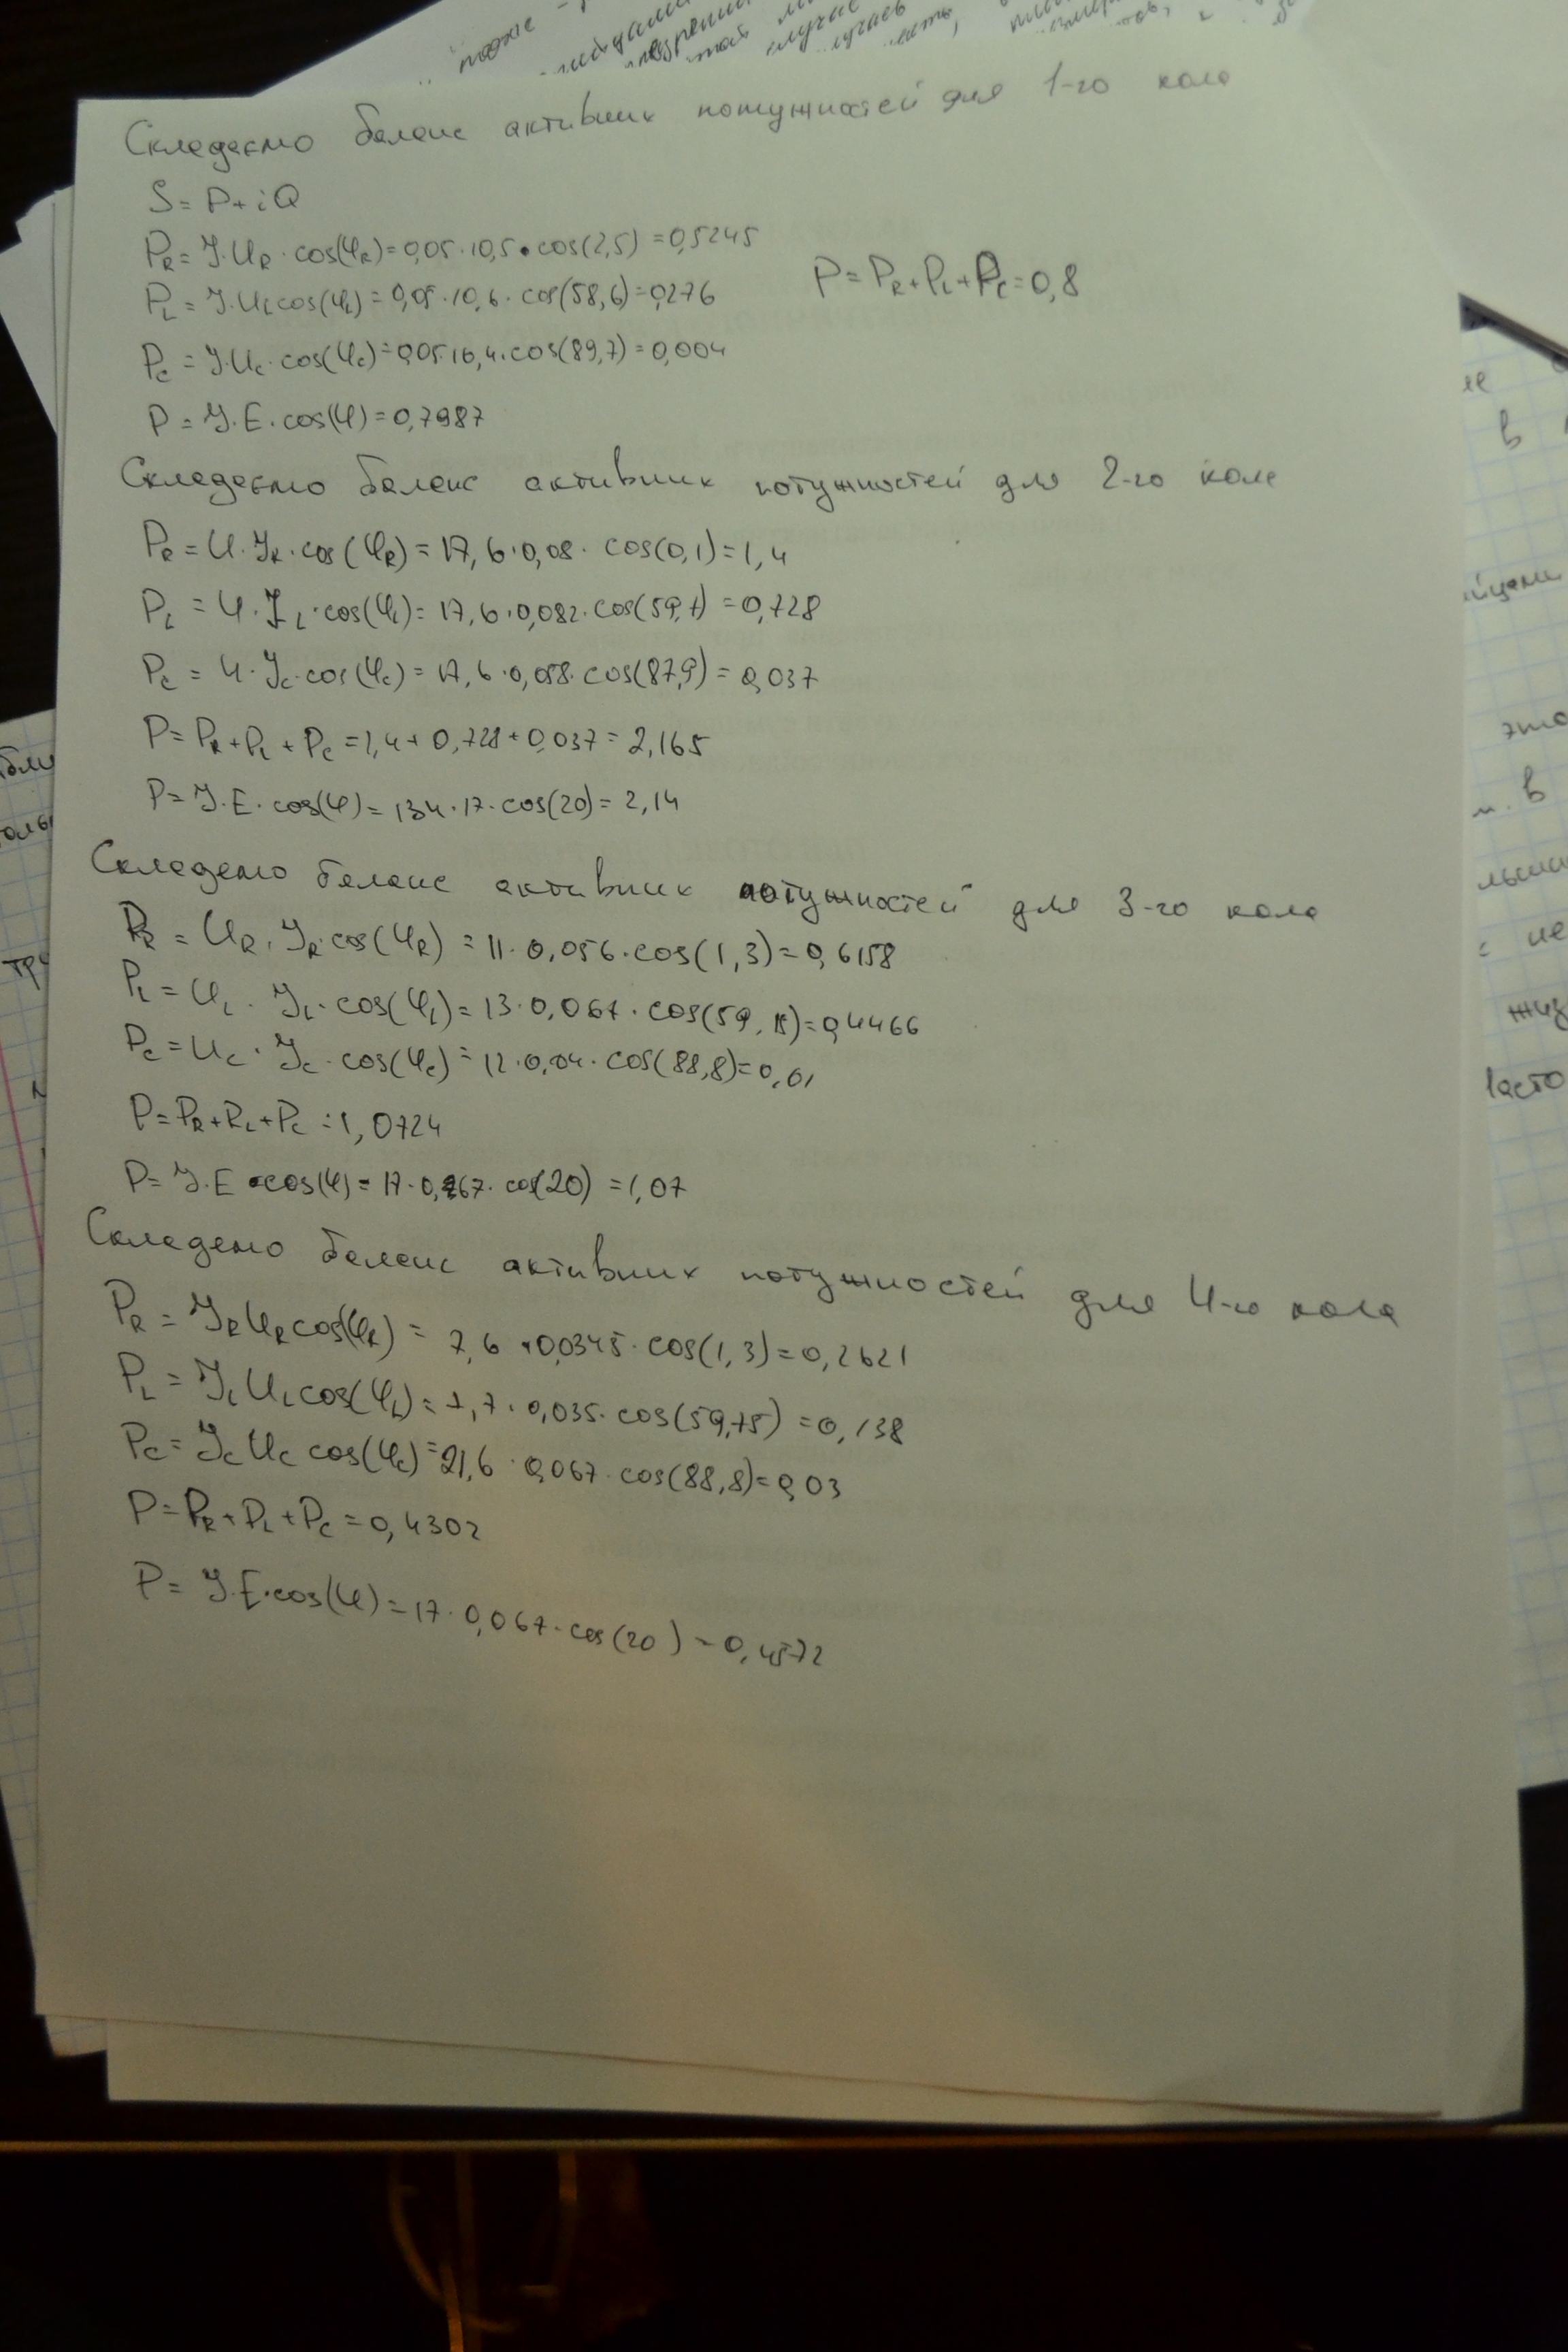 Складаємо баланс активних потужностей для 1-го кола
S = P + iQ
P_R = J·U_R·cos(φ_R) = 0,05·10,5·cos(2,5) = 0,5245
P_L = J·U_L cos(φ_L) = 0,05·10,6·cos(58,6) = 0,276
P = P_R + P_L + P_C = 0,8
P_C = J·U_C·cos(φ_C) = 0,05·16,4·cos(89,7) = 0,004
P = J·E·cos(φ) = 0,7987
Складаємо баланс активних потужностей для 2-го кола
P_R = U·J_R·cos(φ_R) = 17,6·0,08·cos(0,1) = 1,4
P_L = U·J_L·cos(φ_L) = 17,6·0,082·cos(59,7) = 0,728
P_C = U·J_C·cos(φ_C) = 17,6·0,058·cos(87,9) = 0,037
P = P_R + P_L + P_C = 1,4 + 0,728 + 0,037 = 2,165
P = J·E·cos(φ) = 134·17·cos(20) = 2,14
Складемо баланс активних потужностей для 3-го кола
P_R = U_R·J_R·cos(φ_R) = 11·0,056·cos(1,3) = 0,6158
P_L = U_L·J_L·cos(φ_L) = 13·0,067·cos(59,) = 0,4466
P_C = U_C·J_C·cos(φ_C) = 12·0,04·cos(88,8) = 0,01
P = P_R + P_L + P_C = 1,0724
P = J·E·cos(φ) = 17·0,067·cos(20) = 1,07
Складемо баланс активних потужностей для 4-го кола
P_R = J_R U_R cos(φ_R) = 7,6·0,0345·cos(1,3) = 0,2621
P_L = J_L U_L cos(φ_L) = 7,7·0,035·cos(59,75) = 0,138
P_C = J_C U_C cos(φ_C) = 21,6·0,067·cos(88,8) = 0,03
P = P_R + P_L + P_C = 0,4302
P = J·E·cos(φ) = 17·0,067·cos(20) = 0,4572